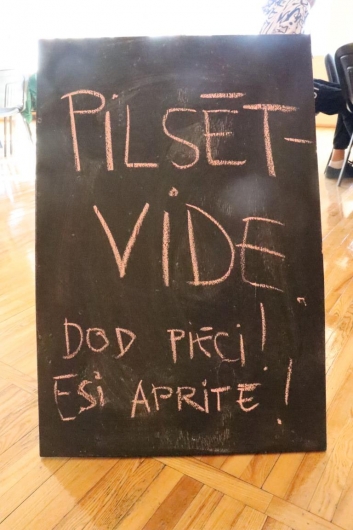 PILSĒT-
VIDE
DOD PIECI!
ESI APRITĒ!